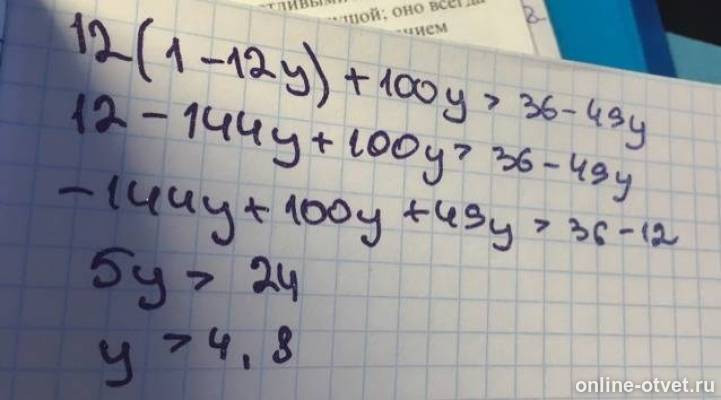 тливыми
шой; оно всегда
нием
12(1-12y)+100y>36-49y
12-144y+100y>36-49y
-144y+100y+49y>36-12
5y>24
y>4,8
online-otvet.ru